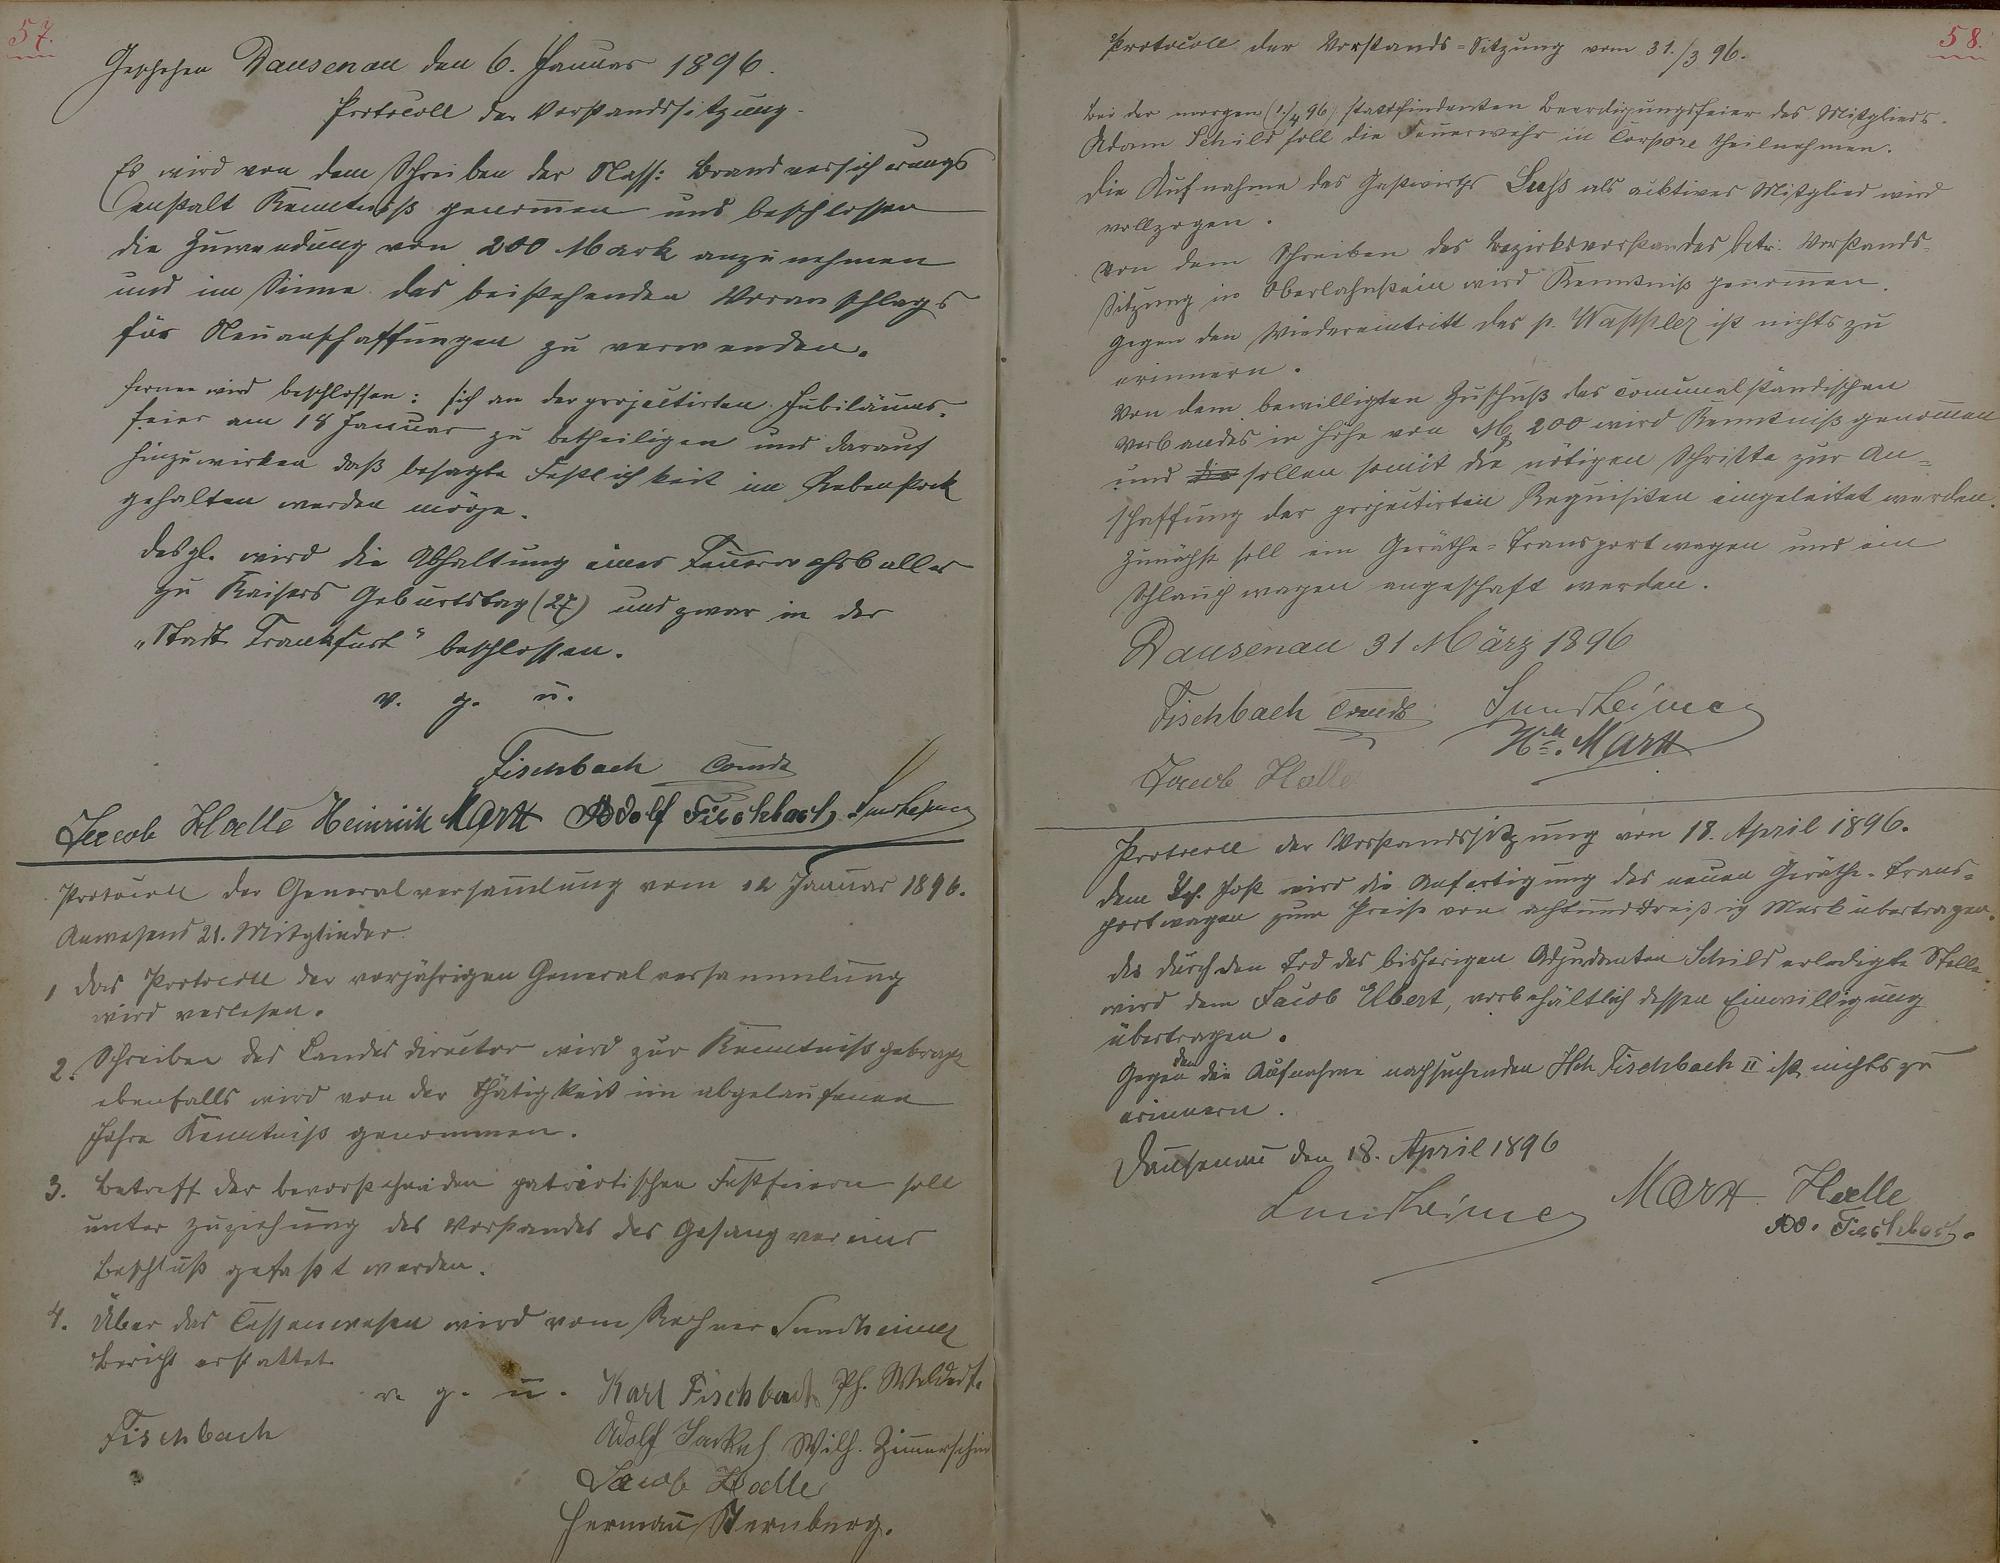 57.
Geschehen Dausenau den 6. Januar 1896.
Protocoll der Vorstandssitzung.
Es wird von dem Schreiben der Nass: Brandversicherungs
anstalt Kenntniß genom̄en und beschlossen
die Zuwendung von 200 Mark anzunehmen
und im Sinne des beistehenden Voranschlags
für Neuanschaffungen zu verwenden.
ferner wird beschlossen: sich an der projectirten Jubiläums-
feier am 18 Januar zu betheiligen und darauf
hinzuwirken daß besagte Festlichkeit im Rebenstock
gehalten werden möge.
desgl. wird die Abhaltung eines Feuerwehrballes
zu Kaisers Geburtstag (27) und zwar in der
„Stadt Frankfurt" beschlossen.
v. g. u.
Fischbach Com̄dt
Jacob Halle Heinrich Marx Adolf Fischbach Sundheimer
Protocoll der Generalversam̄lung vom 12 Januar 1896.
Anwesend 21. Mitglieder.
1 Das Protocoll der vorjährigen Generalversammlung
wird verlesen.
2. Schreiben des Landesdirector wird zur Kenntniß gebracht
ebenfalls wird von der Thätigkeit im abgelaufenen
Jahre Kenntniß genommen.
3. Betreff der bevorstehenden patriotischen Festfeiern soll
unter Zuziehung des Vorstandes des Gesangvereins
Beschluß gefaßt werden.
4. Über das Cassenwesen wird vom Rechner Sundheimer
Bericht erstattet
v. g. u. Karl Fischbach Ph.
Fischbach Adolf Wilh. Zimmerschied
Jacob Halle
Hermann Sternberg.
58.
Protocoll der Vorstands=Sitzung vom 31./3 96.
Bei der morgen (1./4 96) stattfindenten Beerdigungsfeier des Mitglieds
Adam Schild soll die Feuerwehr in Corpore theilnehmen.
Die Aufnahme des Gastwirths als aktives Mitglied wird
vollzogen.
Von dem Schreiben des Bezirksvorstandes betr. Vorstands-
Sitzung in Oberlahnstein wird Kenntniß genom̄en.
Gegen den Wiedereintritt des p. Wassler ist nichts zu
erinnern.
Von dem bewilligten Zuschuß des comunalständischen
Verbandes in Höhe von M 200 wird Kenntniß genom̄en
und die sollen somit die nötigen Schritte zur An=
schaffung der projectirten Requisiten eingeleitet werden.
Zunächst soll ein Geräthe=Transportwagen und ein
Schlauchwagen angeschaft werden.
Dausenau 31 März 1896
Fischbach Comdt Sundheimer
Hch. Marx
Jacob Halle
Protocoll der Vorstandssitzung von 18. April 1896.
Dem Post wird die Anfertigung des neuen Geräthe-Trans=
portwagen zum Preise von achtunddreißig Mark übertragen.
die durch den Tod des bisherigen Adjudanten Schild erledigte Stelle
wird dem Jacob Elbert, vorbehältlich dessen Einwilligung
übertragen.
Gegen den die Aufnahme nachsuchenden Hch Fischbach II ist nichts zu
erinnern.
Dausenau den 18. April 1896
Sundheimer Marx Halle
Ad. Fischbach.